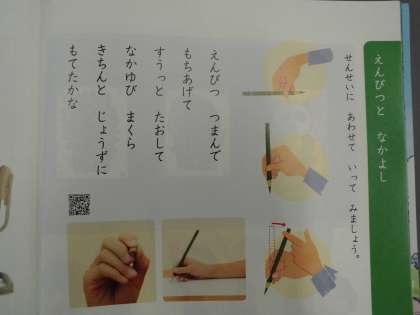 えんぴつと なかよし
せんせいに あわせて いって みましょう。
えんぴつ つまんで
もちあげて
すうっと たおして
なかゆび まくら
きちんと じょうずに
もてたかな